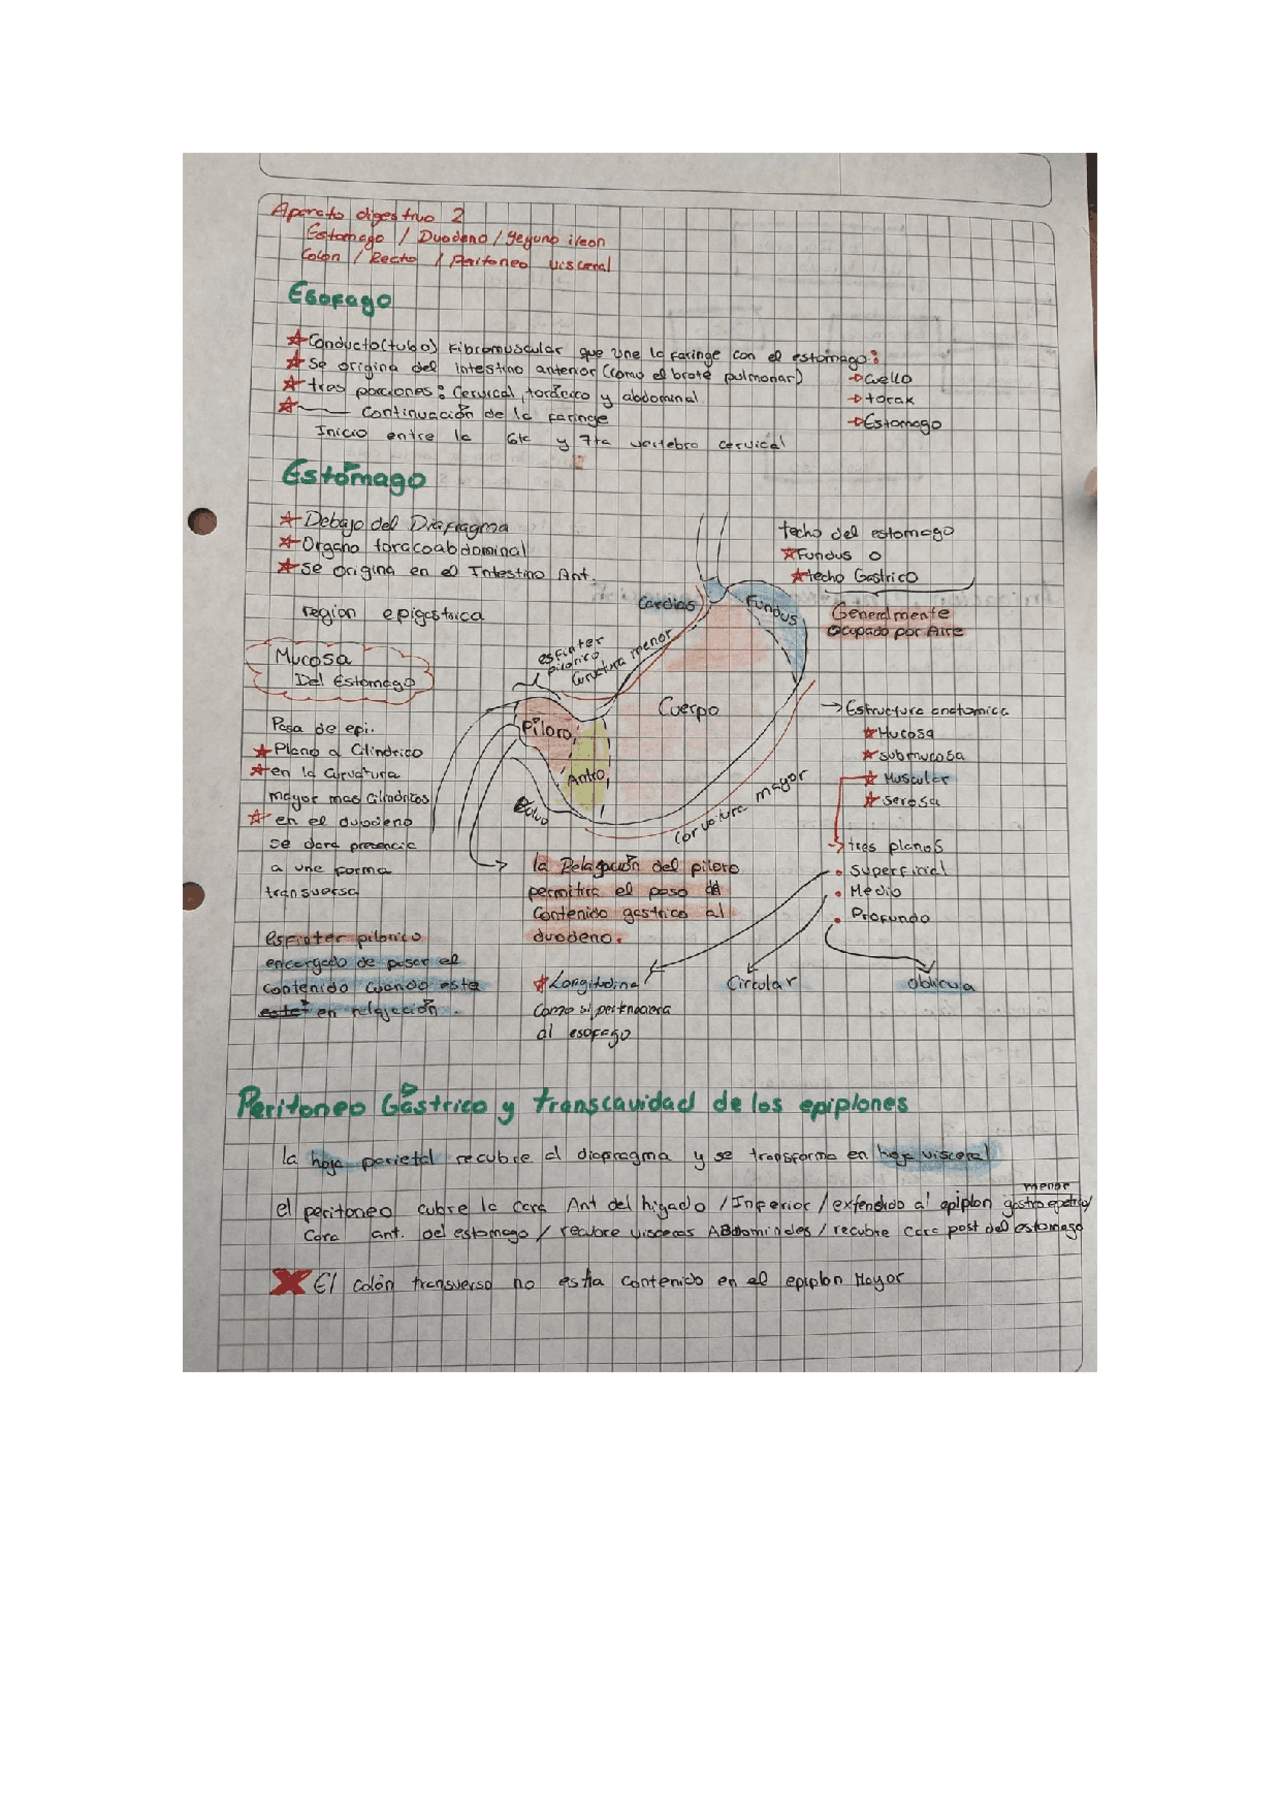 Aparato digestivo 2
Estomago / Duodeno / Yeyuno ileon
Colon / Recto / Peritoneo visceral
Esofago
Conducto (tubo) Fibromuscular que une la faringe con el estomago:
se origina del intestino anterior (como el brote pulmonar)
tres porciones: Cervical, torácico y abdominal
Continuación de la faringe
Inicio entre la 6ta y 7ta vertebra cervical
Cuello
torax
Estomago
Estómago
Debajo del Diafragma
Organo toracoabdominal
se origina en el Intestino Ant.
region epigastrica
techo del estomago
Fundus o
techo Gastrico
Generalmente
Ocupado por Aire
Cardias
Fundus
esfinter
pilorico
Curvatura menor
Cuerpo
Piloro
Antro
Bulbo
Corvatura mayor
Mucosa
Del Estomago
Pasa de epi.
Plano a Cilindrico
en la Curvatura
mayor mas Cilindricos
en el duodeno
se dara presencia
a una forma
transversa
esfinter pilorico
encargado de pasar el
contenido cuando esta
este en relajación.
la Relajación del piloro
permitira el paso del
Contenido gastrico al
duodeno.
Estructura anatomica
Mucosa
submucosa
Muscular
serosa
tres planos
Superficial
Medio
Profundo
Longitudinal
Como si perteneciera
al esofago
Circular
oblicua
Peritoneo Gástrico y transcavidad de los epiplones
la hoja parietal recubre el diafragma y se transforma en hoja visceral
menor
el peritoneo cubre la cara Ant del higado / Inferior / extendido al epiplon
Cara ant. del estomago / recubre visceras Abdominales / recubre cara post del estomago
El colón transverso no esta contenido en el epiplon Mayor